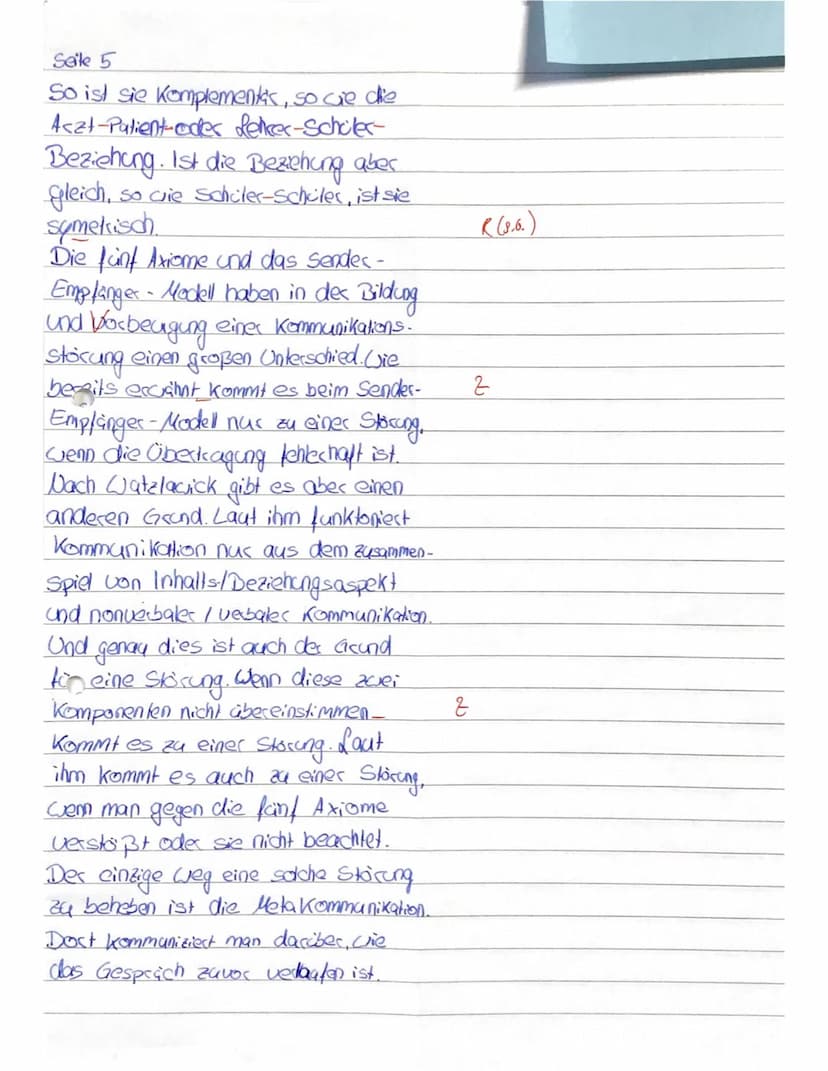 Seite 5
So ist sie Komplementär, so wie die
Arzt-Patient-oder Lehrer-Schüler-
Beziehung. Ist die Beziehung aber
gleich, so wie Schüler-Schüler, ist sie
symetrisch. R (s.o.)
Die fünf Axiome und das Sender-
Empfänger-Modell haben in der Bildung
und Vorbeugung einer Kommunikations-
störung einen großen Unterschied. Wie
bereits erwähnt kommt es beim Sender- Z
Empfänger-Modell nur zu einer Störung,
wenn die Übertragung fehlerhaft ist.
Nach Watzlawick gibt es aber einen
anderen Grund. Laut ihm funktoniert
Kommunikation nur aus dem Zusammen-
spiel von Inhalts/Beziehungsaspekt
und nonverbaler / verbaler Kommunikation.
Und genau dies ist auch der Grund
für eine Störung. Wenn diese zwei
Komponenten nicht übereinstimmen Z
Kommt es zu einer Störung. Laut
ihm kommt es auch zu einer Störung,
wenn man gegen die fünf Axiome
verstößt oder sie nicht beachtet.
Der einzige Weg eine solche Störung
zu beheben ist die Metakommunikation.
Dort kommuniziert man darüber, wie
das Gespräch zuvor verlaufen ist.